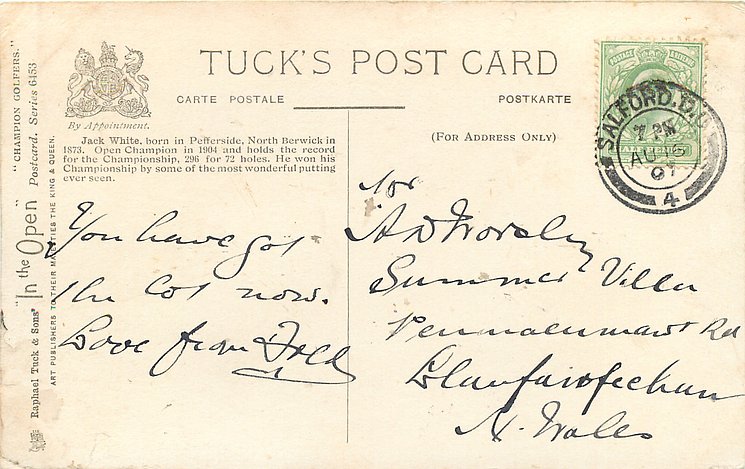 TUCK'S POST CARD
CARTE POSTALE
POSTKARTE
By Appointment.
(For Address Only)
Jack White, born in Pefferside, North Berwick in
1873. Open Champion in 1904 and holds the record
for the Championship, 296 for 72 holes. He won his
Championship by some of the most wonderful putting
ever seen.
"CHAMPION GOLFERS."
"In the Open" Postcard. Series 6453
Raphael Tuck & Sons'
ART PUBLISHERS TO THEIR MAJESTIES THE KING & QUEEN.
You have got
the lot now.
Love from
A D Worsley
Summer Villa
Penmaenmawr Rd
Llanfairfechan
N. Wales
POSTAGE
SALFORD.
AU 16
07
4